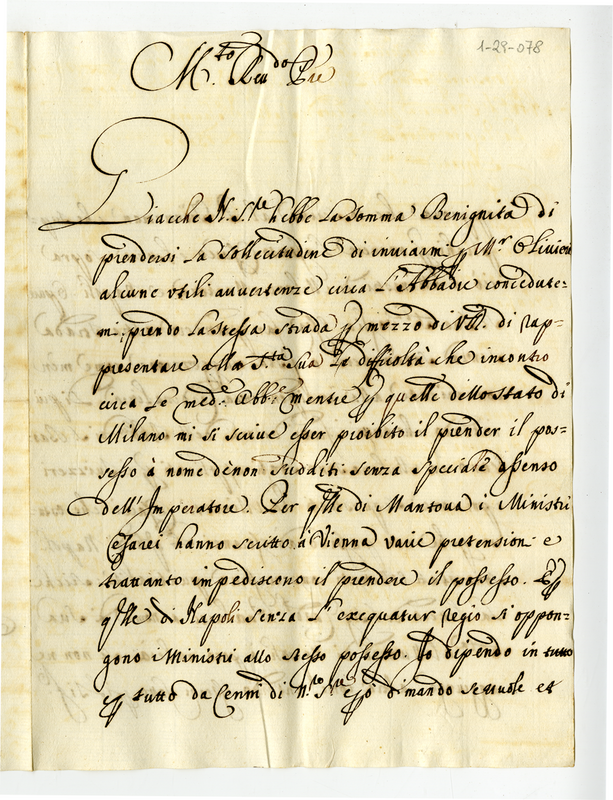 1-29-078
M.to Reu.do Pre
Giacche N. S.re hebbe la somma Benignità di
prendersi la sollecitudine di inviarmi p Mr. Olivieri
alcune utili auuertenze circa l'Abbadie concedute=
mi; prendo la stessa strada p mezzo di V.R. di rap=
presentare alla S.tà Sua le difficoltà che incontro
circa le med.e Abb.e mentre p quelle dello stato di
Milano mi si scriue esser proibito il prender il pos=
sesso à nome de non sudditi senza speciale assenso
dell'Imperatore. Per q.lle di Mantoua i Ministri
Cesarei hanno scritto à Vienna varie pretensioni e
trattanto impediscono il prendere il possesso. E p
q.lle di Napoli senza l'exequatur regio si oppon=
gono i Ministri allo stesso possesso. Io dipendo in tutto
e p tutto da Cenni di N.ro S.re e però dimando se vuole et